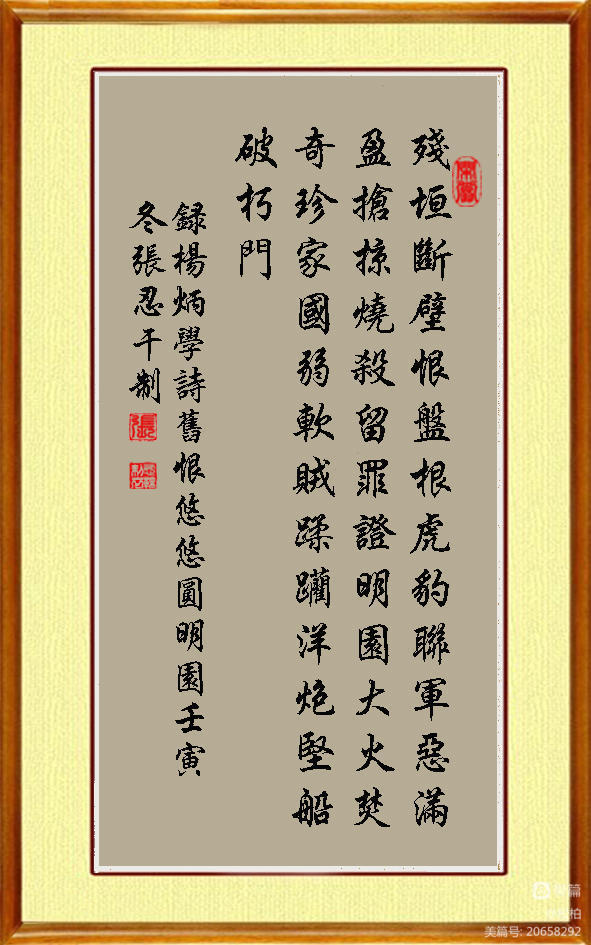 殘垣斷壁恨盤根虎豹聯軍惡滿
盈搶掠燒殺留罪證明園大火焚
奇珍家國弱軟賊蹂躪洋炮堅船
破朽門
録楊炳學詩舊恨悠悠圓明園壬寅
冬張忍干制
張
美篇号: 20658292